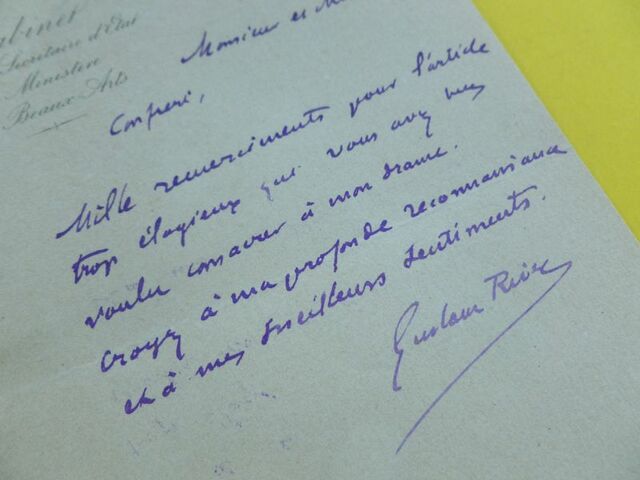 abinet
Secrétaire d'État
Ministère
Beaux-Arts
Monsieur et
Confrère,
Mille remerciments pour l'article
trop élogieux que vous avez bien
voulu consacrer à mon drame.
Croyez à ma profonde reconnaissance
et à mes meilleurs sentiments.
Gustave Rivet